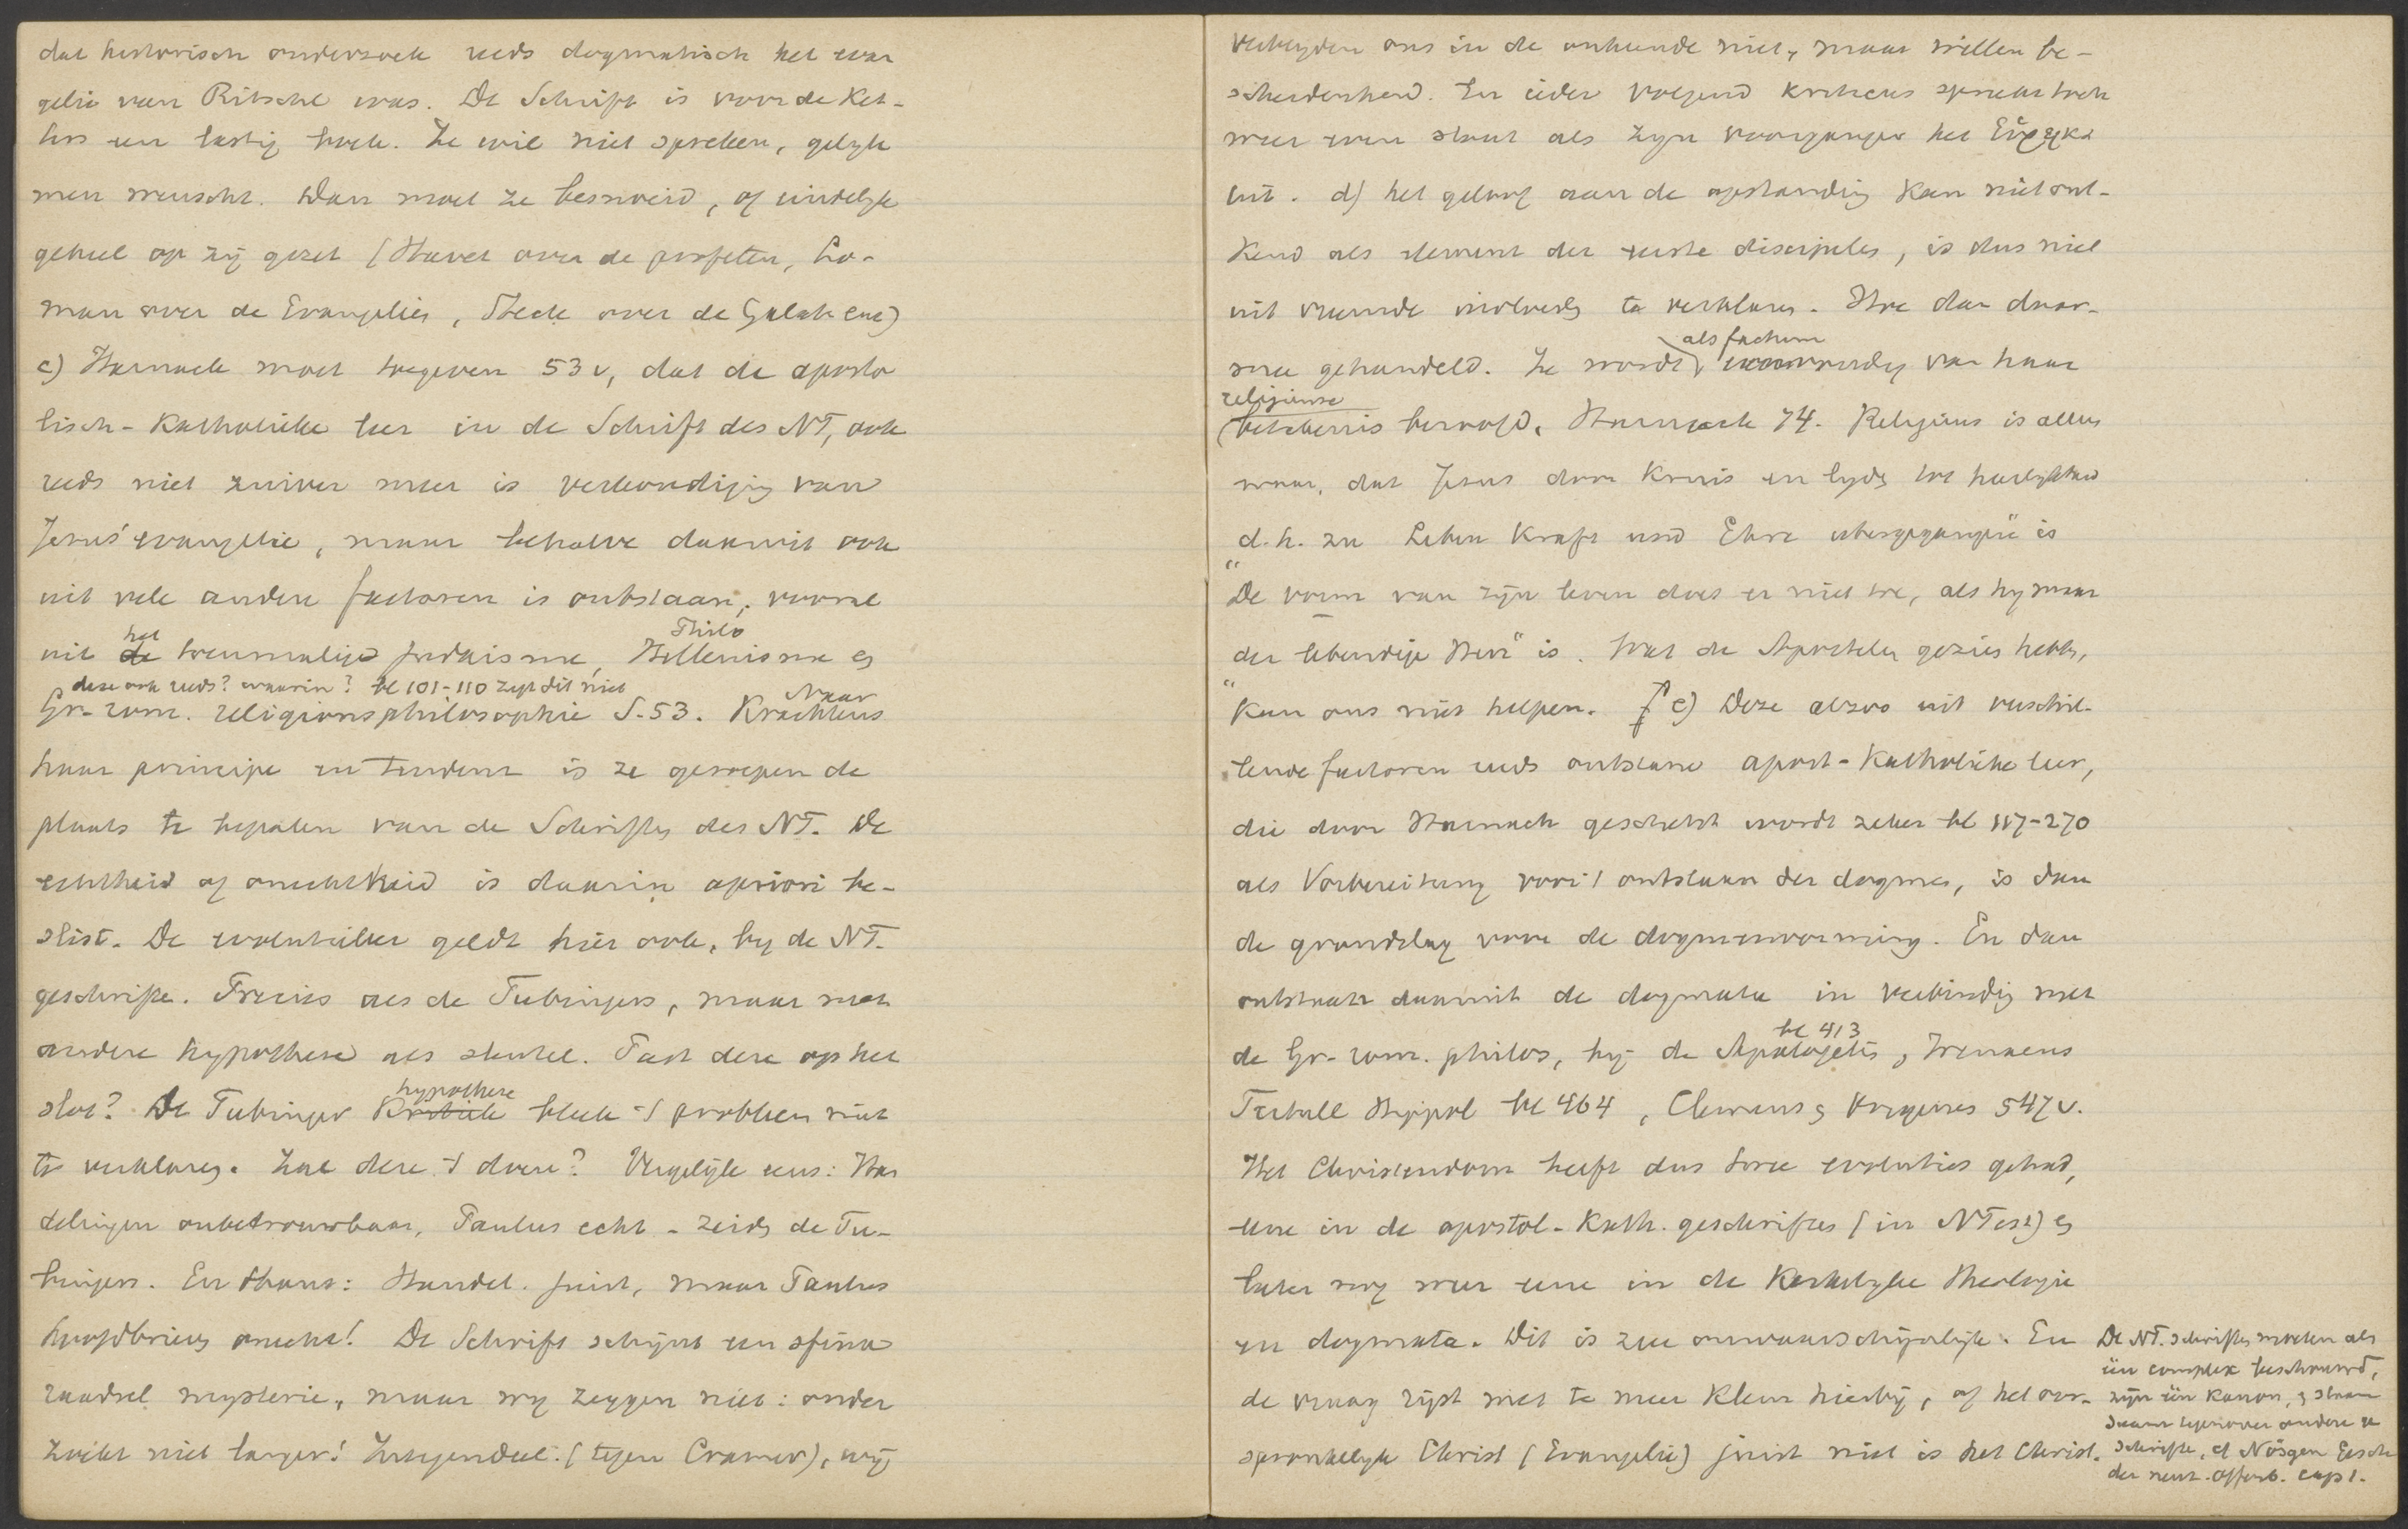 dat historisch onderzoek reeds dogmatisch het evan
gelie van Ritschl was. De Schrift is voor de Ket-
ters een lastig boek. Ze wil niet spreken, gelyk
men wenscht. Dan moet ze besnoeid, of eindelyk
geheel op zij gezet (Havet over de profeten, Lo-
man over de Evangelies, Steck over de Galatiens)
c) Harnack moet toegeven 53 v, dat de aposto
lisch-Katholieke leer in de Schrift des NT, ook
reeds niet zuiver meer is verkondiging van
Jezus' evangelie, maar behalve daaruit ook
uit vele andere factoren is ontstaan, vooral
uit het toenmalige judaisme, Philo Hellenisme en
deze ook reeds? waarin? bl 101-110 zegt dit niet
Gr-rom. religionsphilosophie S. 53. Naar
haar principe en tendenz is ze geroepen de
plaats te bepalen van de Schriften des NT. De
echtheid of onechtheid is daarin apriori be-
slist. De evolutieleer geldt hier ook, by de NT.
geschriften. Precies als de Tubingers, maar met
andere hypothese als sleutel. Past deze op het
slot? De Tubinger hypothese bleek 't probleem niet
te verklaren. Zal deze 't doen? Vergelyk eens: Han
delingen onbetrouwbaar, Paulus echt - zeiden de Tu-
bingers. En thans: Handel. juist, maar Paulus
hoofdbrieven onecht! De Schrift schijnt een sfinx
raadsel mysterie, maar wy zeggen niet: onder
zoekt niet langer! Integendeel. (tegen Cramer), wij
verheyden ons in de onkunde niet, maar willen be-
scheidenheid. En ieder volgend kriticus spreekt toch
weer even stout als zyn voorganger het Εὕρηκα
uit. d) het geloof aan de opstanding kan niet ont-
kend als element der eerste discipelen, is dus niet
uit vreemde invloeden te verklaren. Hoe dan daar-
mee gehandeld. Ze wordt als factum eenvoudig van haar
religieuse
beteekenis beroofd, Harnack 74. Religieus is alleen
waar, dat Jezus door kruis en lyden tot heerlykheid
d.h. zu Leben Kraft und Ehre übergegangen" is
"De vorm van zijn leven doet er niet toe, als hy maar
der lebendige Herr" is. Wat de Apostelen gezien hebben,
"kan ons niet helpen. e) Deze alzoo uit verschil-
lende factoren reeds ontstane apost-Katholieke leer,
die door Harnack geschetst wordt zeker bl 117-270
als Vorbereitung voor 't ontstaan der dogmas, is dan
de grondslag voor de dogmenvorming. En dan
ontstaan daaruit de dogmata in verbinding met
de Gr-rom. philos, bij de Apologeten bl 413, Irenaeus
Tertull Hippol bl 464, Clemens en Origenes 547 v.
Het Christendom heeft dus twee evoluties gehad,
eene in de apostol-Kath. geschriften (in NT) en
later nog weer eene in de Kerkelyke Theologie
en dogmata. Dit is zeer onwaarschijnlijk. En
de vraag rijst met te meer klem hierbij, of het oor-
spronkelyk Christ (Evangelie) juist niet is het Christ.
De NT. schriften moeten als
één complex beschouwd,
zijn één Kanon, en staan
saam tegenover andere
schriften, cf Nösgen Gesch
der neut. offenb. cap 1.